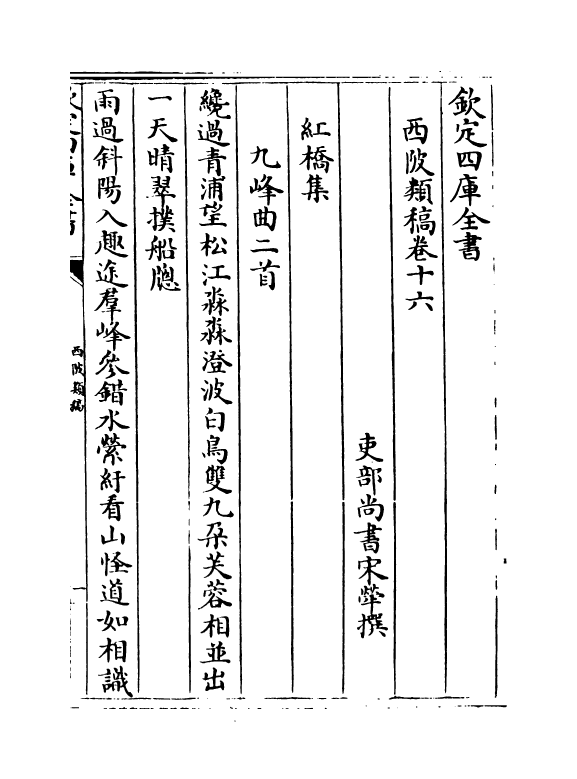 欽定四庫全書
西陂類稿卷十六
吏部尚書宋犖撰
紅橋集
九峰曲二首
纔過青浦望松江淼淼澄波白鳥雙九朶芙蓉相並出
一天晴翠撲船牕
雨過斜陽入趣途羣峰參錯水縈紆看山怪道如相識
西陂類稿
一